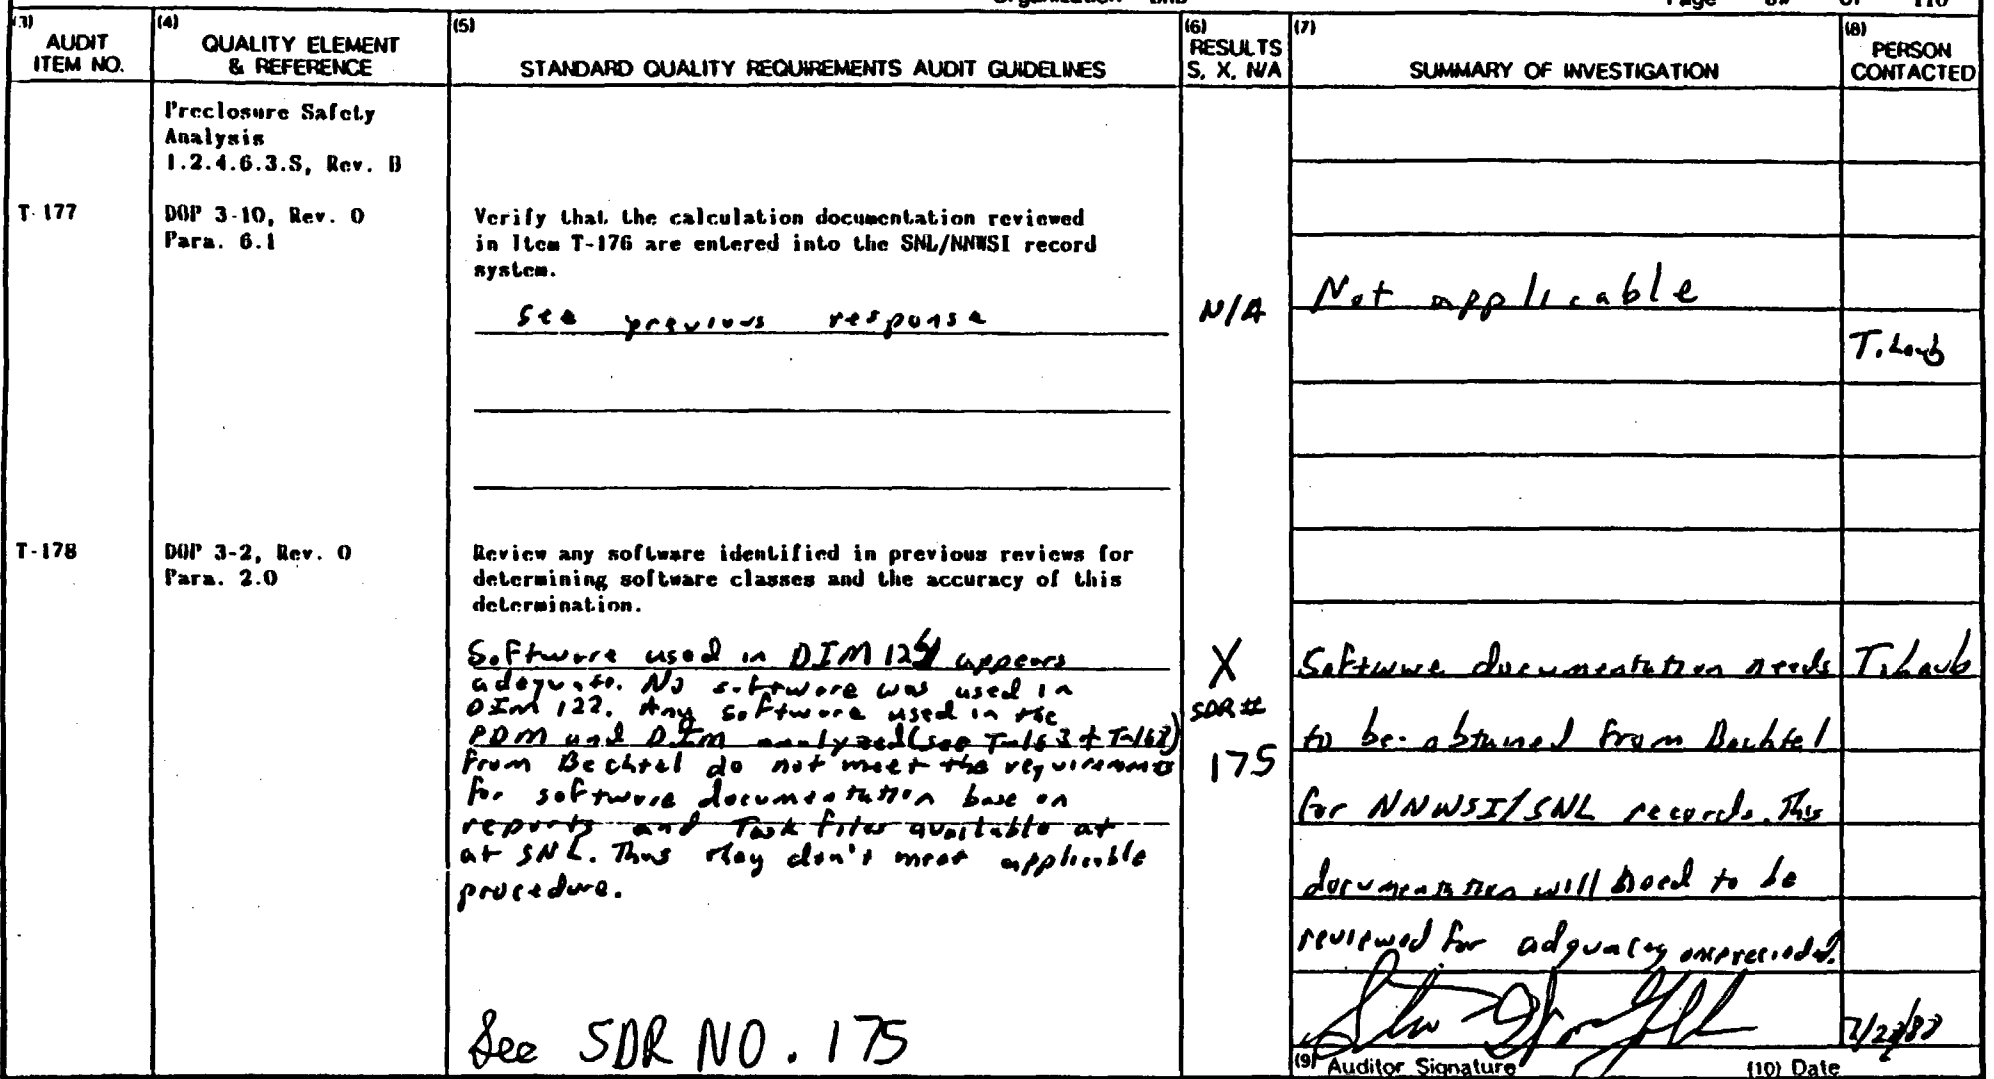 Page of 110
(3) AUDIT ITEM NO.
(4) QUALITY ELEMENT & REFERENCE
(5) STANDARD QUALITY REQUIREMENTS AUDIT GUIDELINES
(6) RESULTS S, X, N/A
(7) SUMMARY OF INVESTIGATION
(8) PERSON CONTACTED
Preclosure Safety
Analysis
1.2.4.6.3.S, Rev. B
T-177
DOP 3-10, Rev. 0
Para. 6.1
Verify that the calculation documentation reviewed
in Item T-176 are entered into the SNL/NNWSI record
system.
See previous response
N/A
Not applicable
T. Laub
T-178
DOP 3-2, Rev. 0
Para. 2.0
Review any software identified in previous reviews for
determining software classes and the accuracy of this
determination.
Software used in DIM appears
adequate. No software was used in
DIM 122. Any software used in the
PDM and DIM analyzed (see T-163 + )
from Bechtel do not meet the requirements
for software documentation base on
reports and Task files available at
at SNL. Thus they don't meet applicable
procedure.
See SDR NO. 175
X
SDR #
175
Software documentation needs
to be obtained from Bechtel
for NNWSI/SNL records. This
documentation will need to be
reviewed for adquacy
T. Laub
(9) Auditor Signature
(10) Date